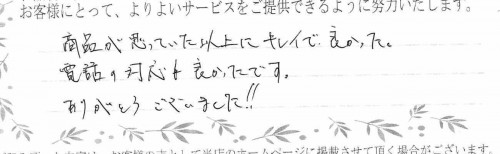 お客様にとって、よりよいサービスをご提供できるように努力いたします。
商品が思っていた以上にキレイで良かった。
電話の対応も良かったです。
ありがとうございました!!
お客様の声として当店のホームページに掲載させて頂く場合がございます。